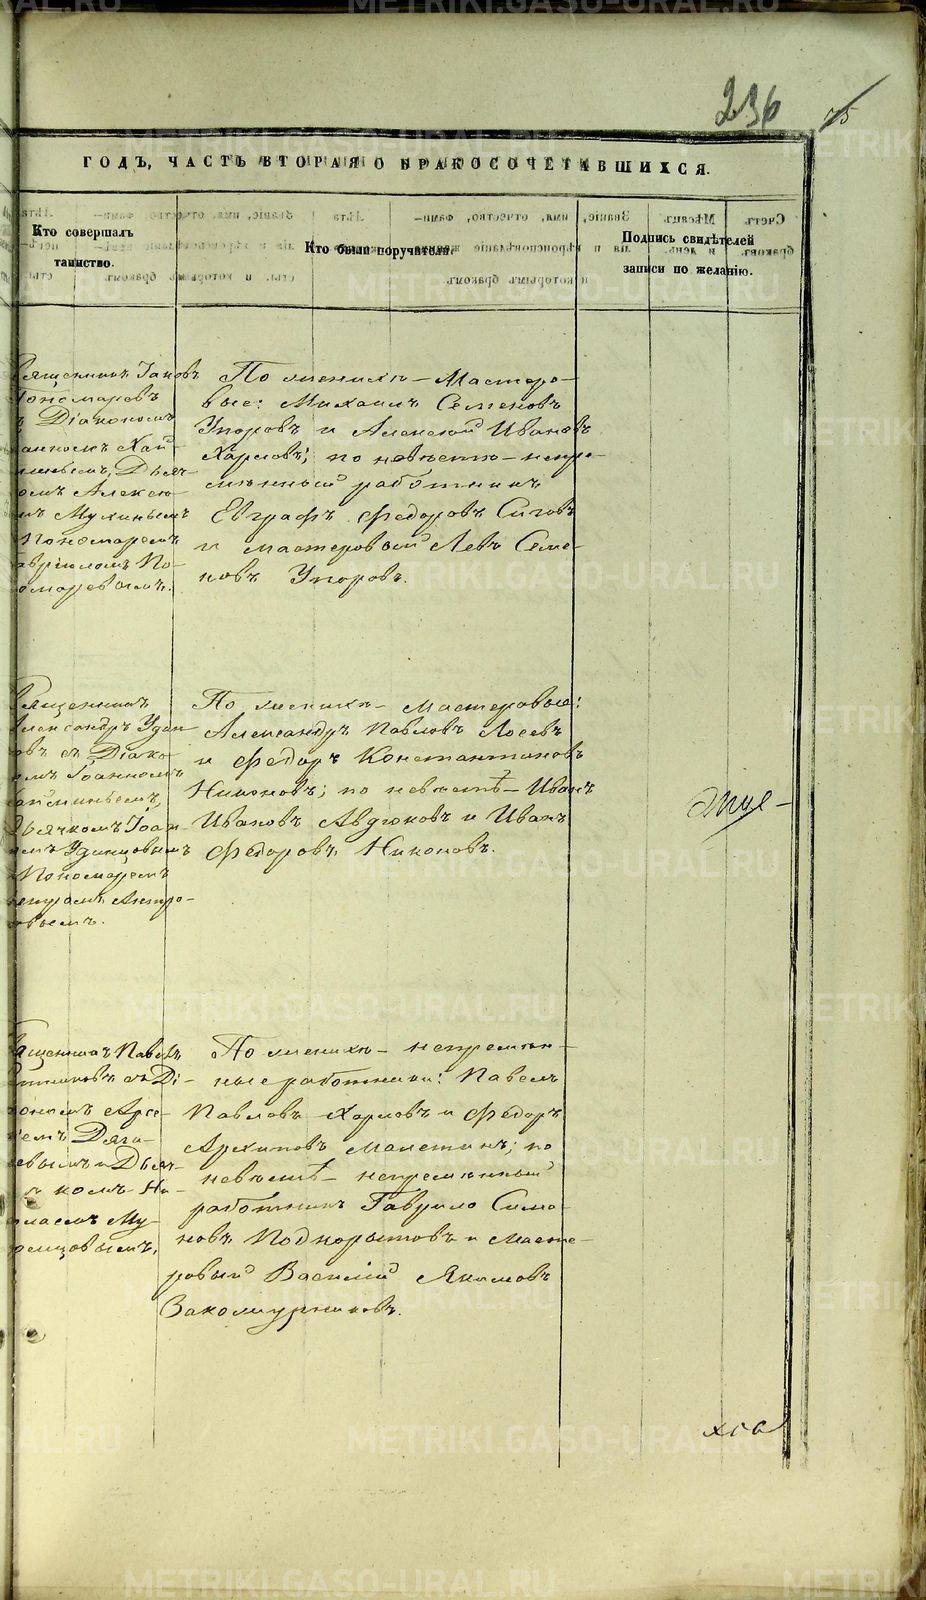 236
75
ГОДЪ, ЧАСТЬ ВТОРАЯ О БРАКОСОЧЕТАВШИХСЯ.
Кто совершалъ
таинство.
Кто были поручители.
Подпись свидѣтелей
записи по желанію.
Священникъ Іаковъ
Пономаревъ
Діакономъ
Дьяч-
комъ Алексѣ-
емъ Мухинымъ
Пономаремъ
Гавріиломъ По-
номаревымъ.
По женихѣ – Мастеро-
вые: Михаилъ Семеновъ
Упоровъ и Алексѣй Ивановъ
Харловъ; по невѣстѣ – непре-
мѣнный работникъ
Евграфъ Федоровъ Сиговъ
и мастеровый Левъ Семе-
новъ Упоровъ.
Священникъ
Александръ Удин-
цовъ съ Діако-
номъ Іоанномъ
Дьячкомъ Іоан-
номъ Удинцовымъ
Пономаремъ
По женихѣ – мастеровые:
Александръ Павловъ Лосевъ
и Федоръ Константиновъ
Никоновъ; по невѣстѣ – Иванъ
Ивановъ Авдюковъ и Иванъ
Федоровъ Никоновъ.
Священникъ Павелъ
съ Ді-
акономъ Арсе-
ніемъ Дяги-
левымъ и Дьяч-
комъ Ни-
колаемъ Му-
ромцовымъ.
По женихѣ – непремѣн-
ные работники: Павелъ
Павловъ Харловъ и Федоръ
Архиповъ Малетинъ; по
невѣстѣ – непремѣнный
работникъ Гаврило Симо-
новъ Подкорытовъ и Масте-
ровый Василій Якимовъ
Закожурниковъ.
METRIKI.GASO-URAL.RU